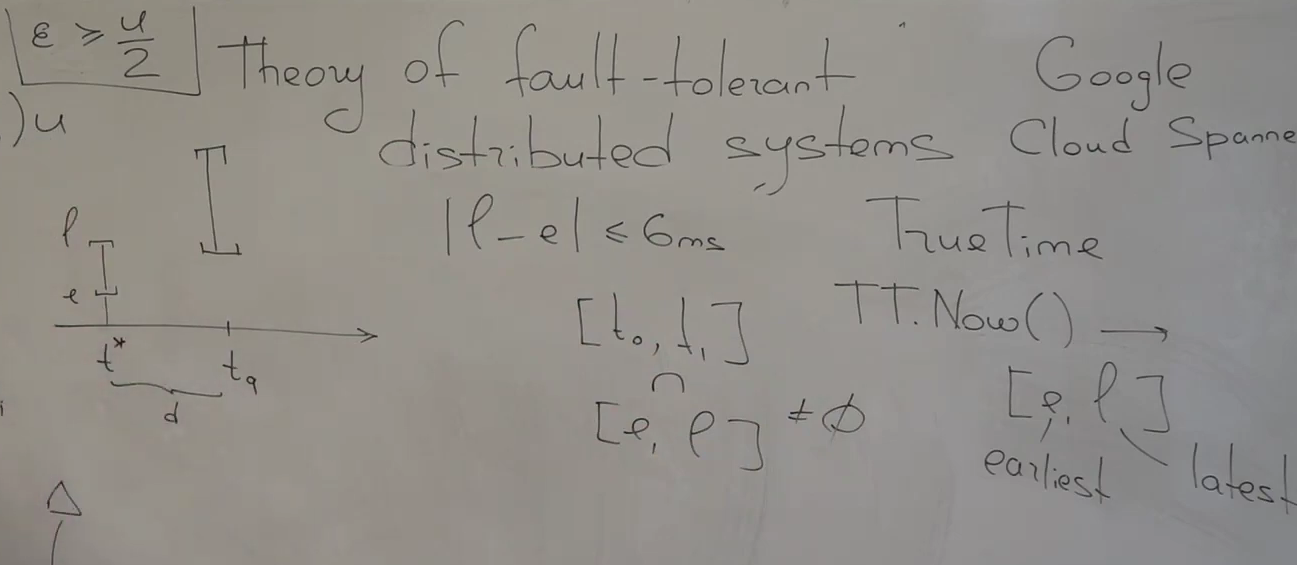 ε ≥ u/2
Theory of fault-tolerant
distributed systems
)u
Google
Cloud Spanne
|l-e| ≤ 6ms
TrueTime
l
e
t*
t_q
d
[t₀, t₁]
∩
[e, l] ≠ ∅
TT.Now() →
[e, l]
earliest
latest